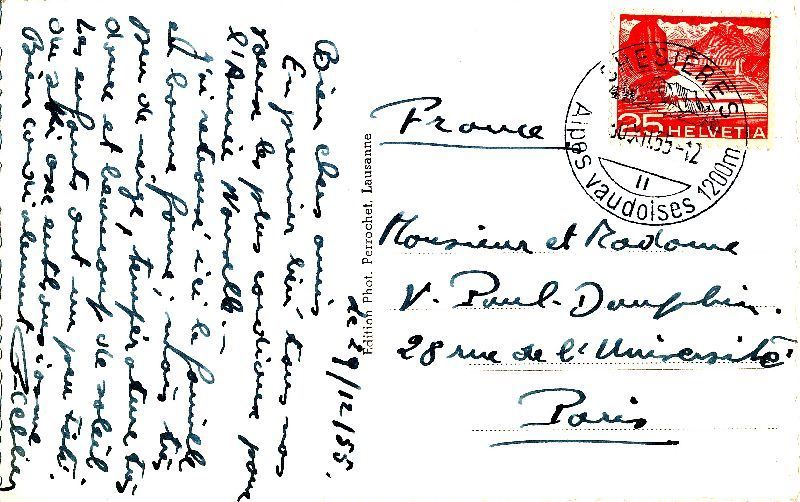 le 29/12/55.
Bien chers amis
En premier lieu tous nos
voeux les plus cordiaux pour
l'Année Nouvelle.—
J'ai retrouvé ici la famille
en bonne forme, mais très
peu de neige, température très
douce et beaucoup de soleil
Les enfants ont un peu tâté
du ski avec enthousiasme
Bien cordialement
Edition Phot. Perrochet, Lausanne
25 HELVETIA
CHESIÈRES
30.XII.55-12
II
Alpes vaudoises 1200m
France
Monsieur et Madame
V. Paul-Dauphin.
28 rue de l'Université
Paris